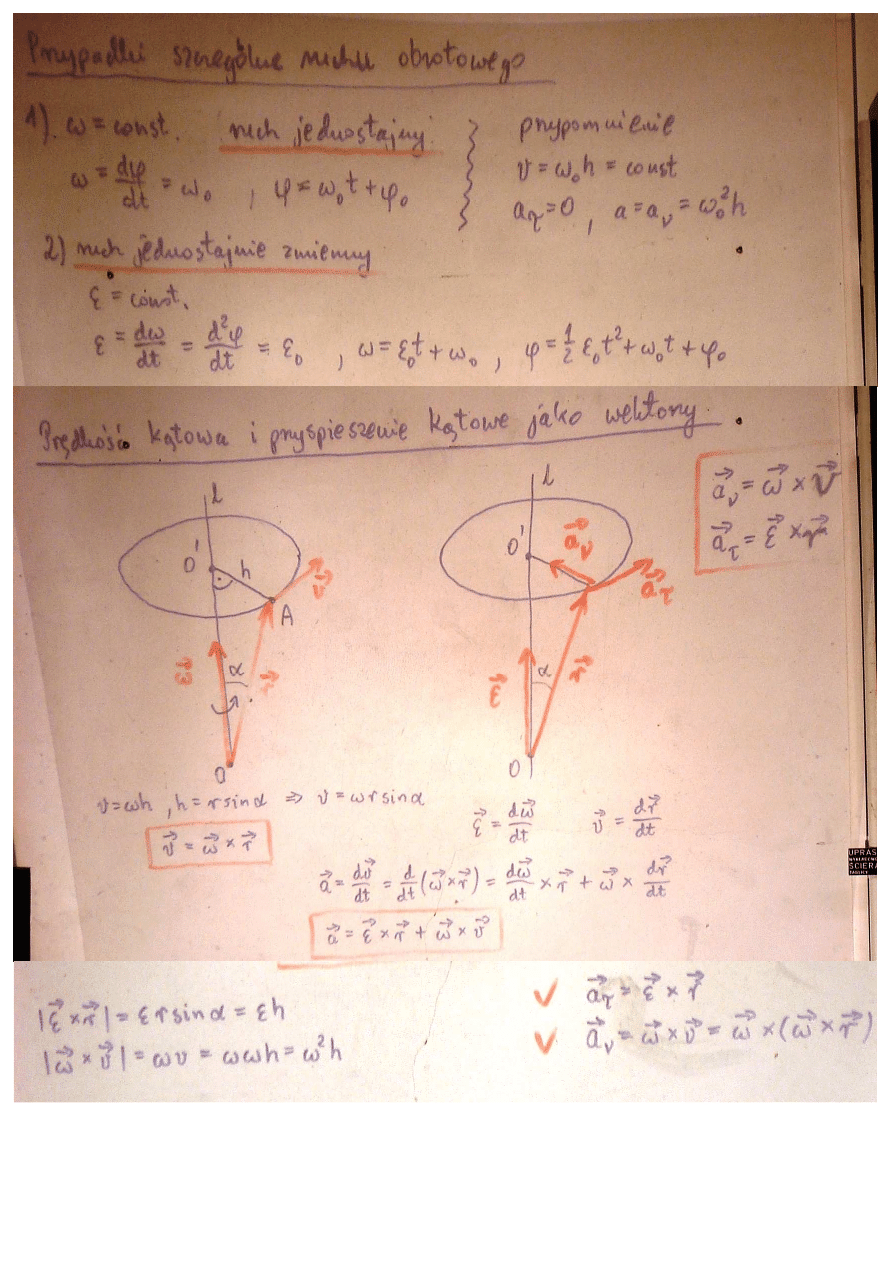 Przypadki szczególne ruchu obrotowego
1). ω = const. ruch jednostajny
ω = dφ/dt = ω₀ , φ = ω₀t + φ₀
przypomnienie
v = ω₀h = const
a_τ = 0 , a = a_ν = ω₀²h
2) ruch jednostajnie zmienny
ε = const.
ε = dω/dt = d²φ/dt = ε₀ , ω = ε₀t + ω₀ , φ = ½ ε₀t² + ω₀t + φ₀
Prędkość kątowa i przyspieszenie kątowe jako wektory.
a⃗_ν = ω⃗ × v⃗
a⃗_τ = ε⃗ × r⃗
l
O'
h
v⃗
A
ω⃗
α
r⃗
O
l
O'
a⃗_ν
a⃗_τ
ε⃗
α
r⃗
O
v = ωh , h = r sin α ⇒ v = ωr sin α
v⃗ = ω⃗ × r⃗
ε⃗ = dω⃗/dt v⃗ = dr⃗/dt
a⃗ = dv⃗/dt = d/dt (ω⃗ × r⃗) = dω⃗/dt × r⃗ + ω⃗ × dr⃗/dt
a⃗ = ε⃗ × r⃗ + ω⃗ × v⃗
|ε⃗ × r⃗| = ε r sin α = εh
|ω⃗ × v⃗| = ωv = ωωh = ω²h
✓ a⃗_τ = ε⃗ × r⃗
✓ a⃗_ν = ω⃗ × v⃗ = ω⃗ × (ω⃗ × r⃗)
UPRAS
ŚCIERA